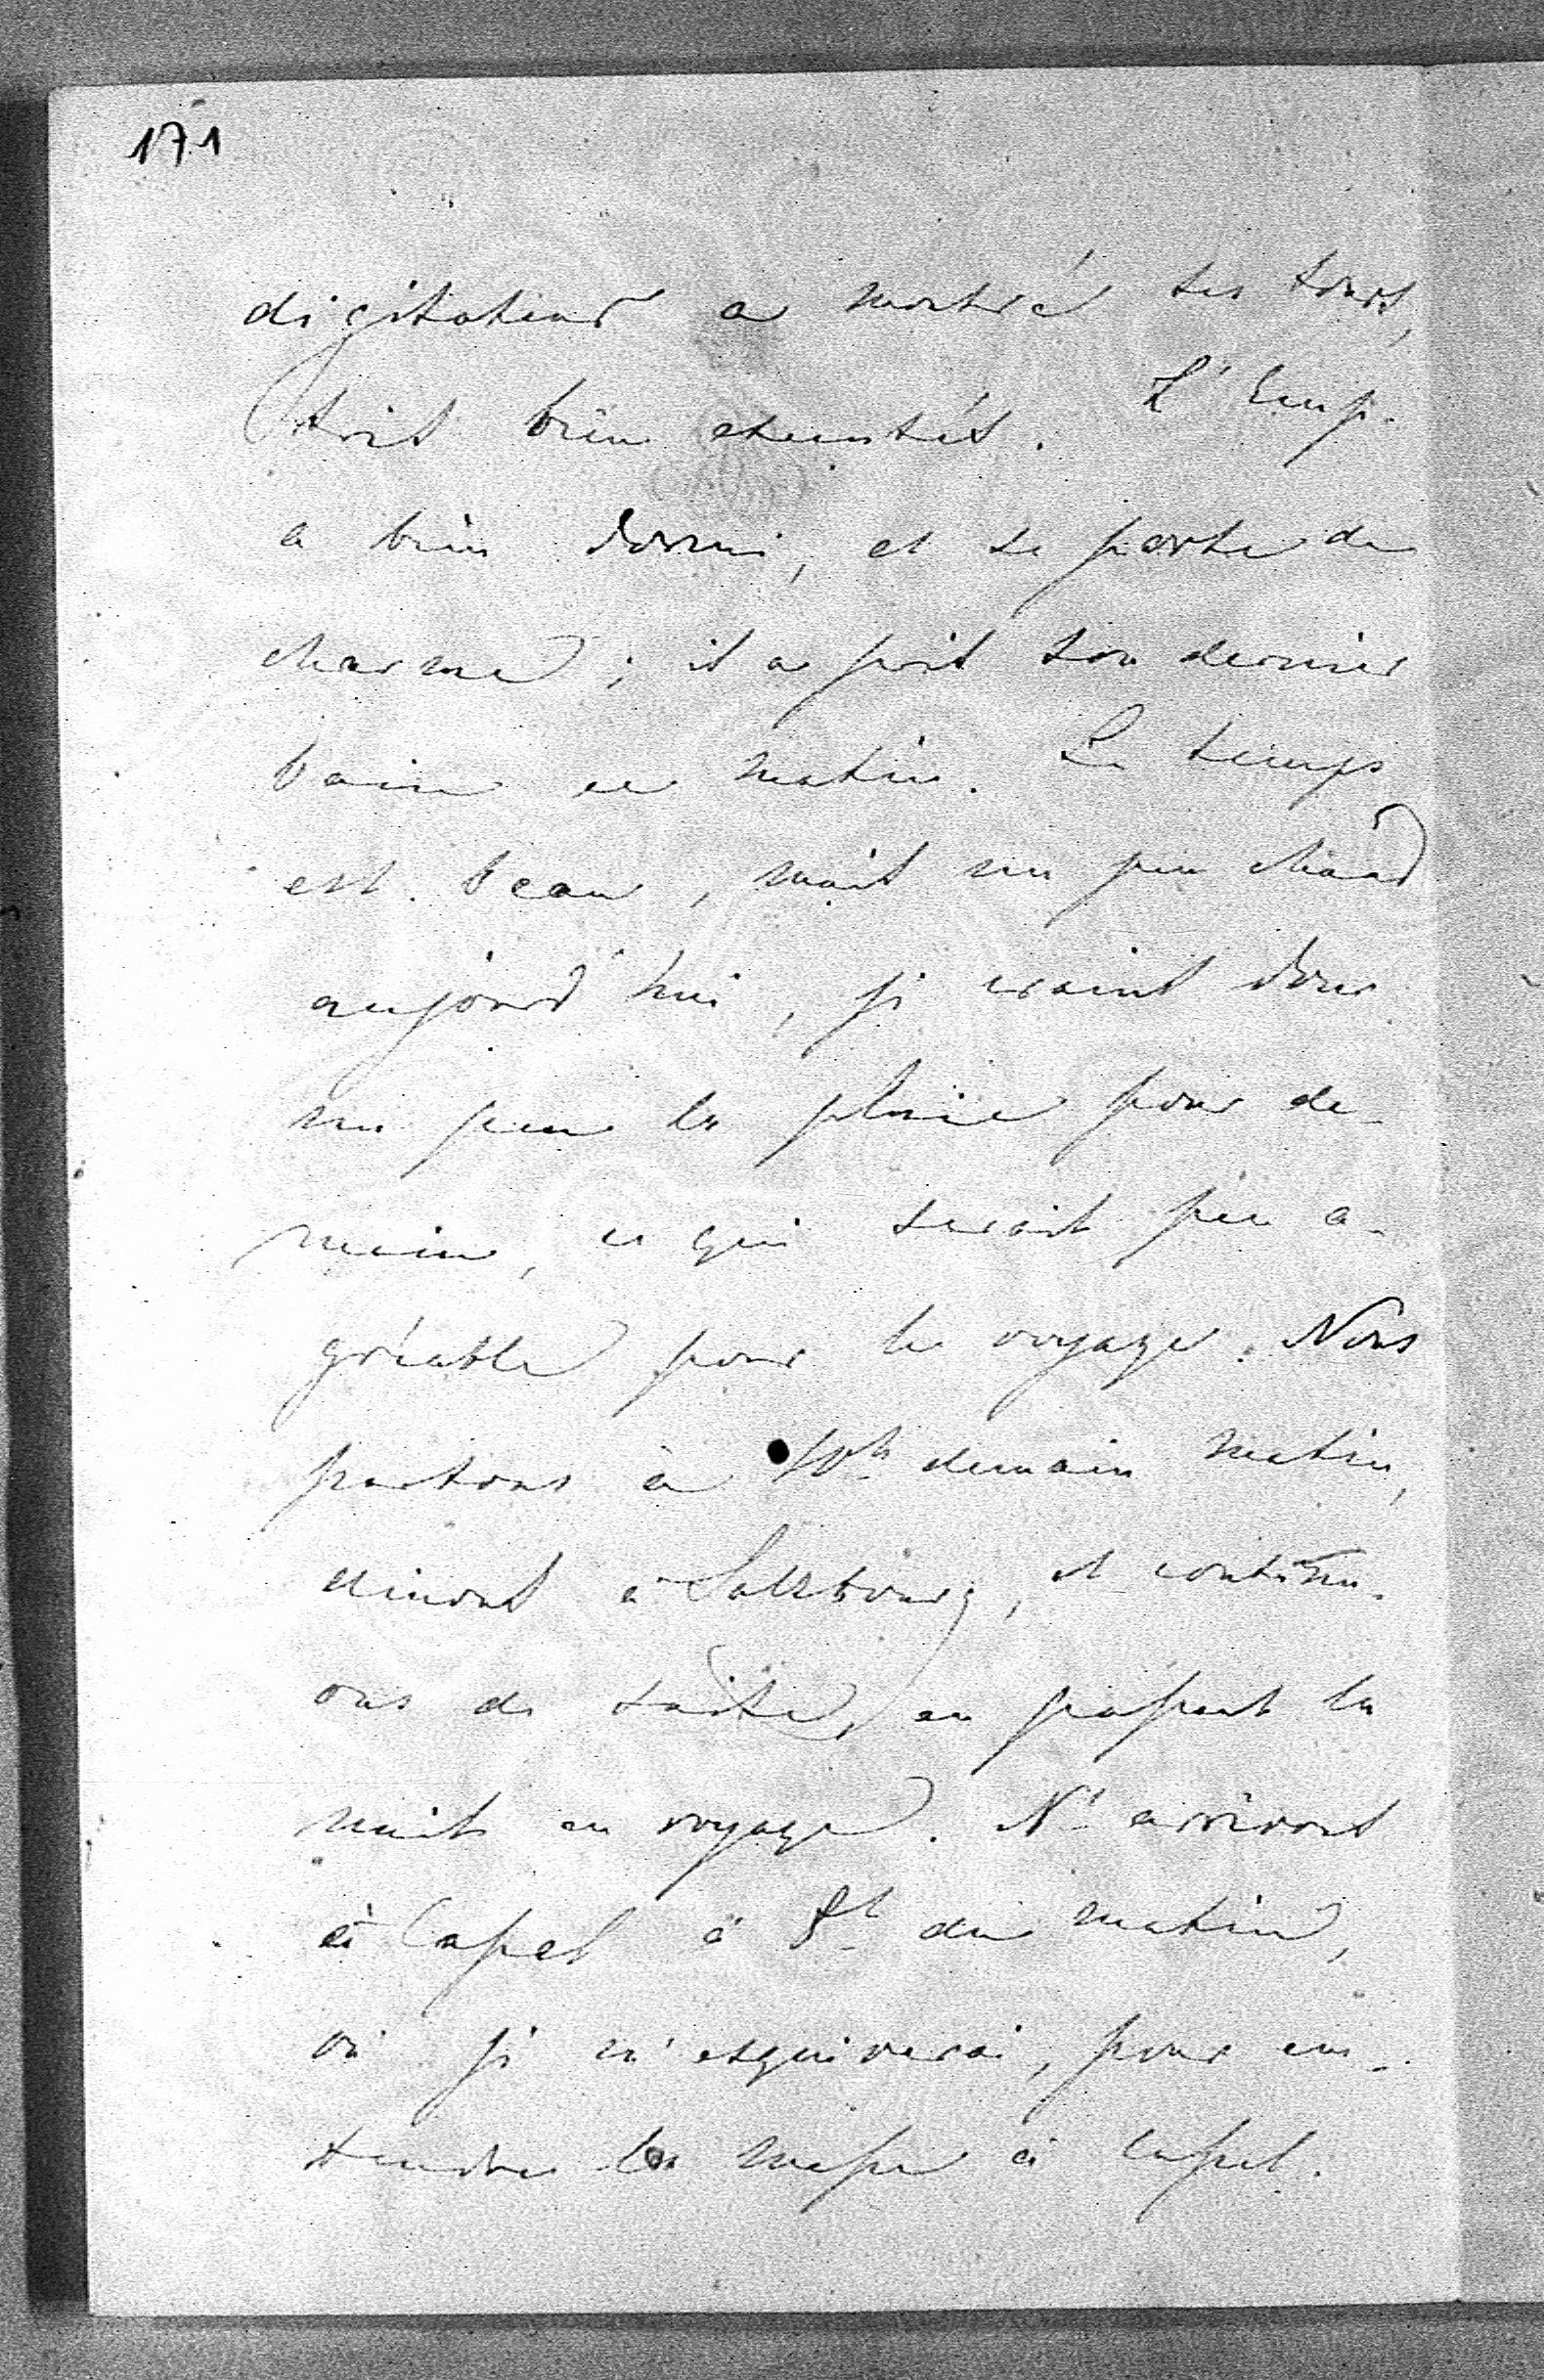 171
digitateur a montré ses tours,
trèt bien executét. L'Emp.
a bien dormi, et se porte de
charme; il a prit son dernier
bain ce matin. Le temps
est beau, mait un peu chaud
aujourd'hui, je craint donc
un peu la pluie pour de-
main, ce qui serait peu a-
gréable pour le voyage. Nous
partons à 10h demain matin,
dinont à Salzbourg, et continu-
ons de suite, en passant la
nuit en voyage. Ns arrivont
à Cassel à 8h du matin,
où je m'esquiverai, pour en-
tendre la messe à Cassel.